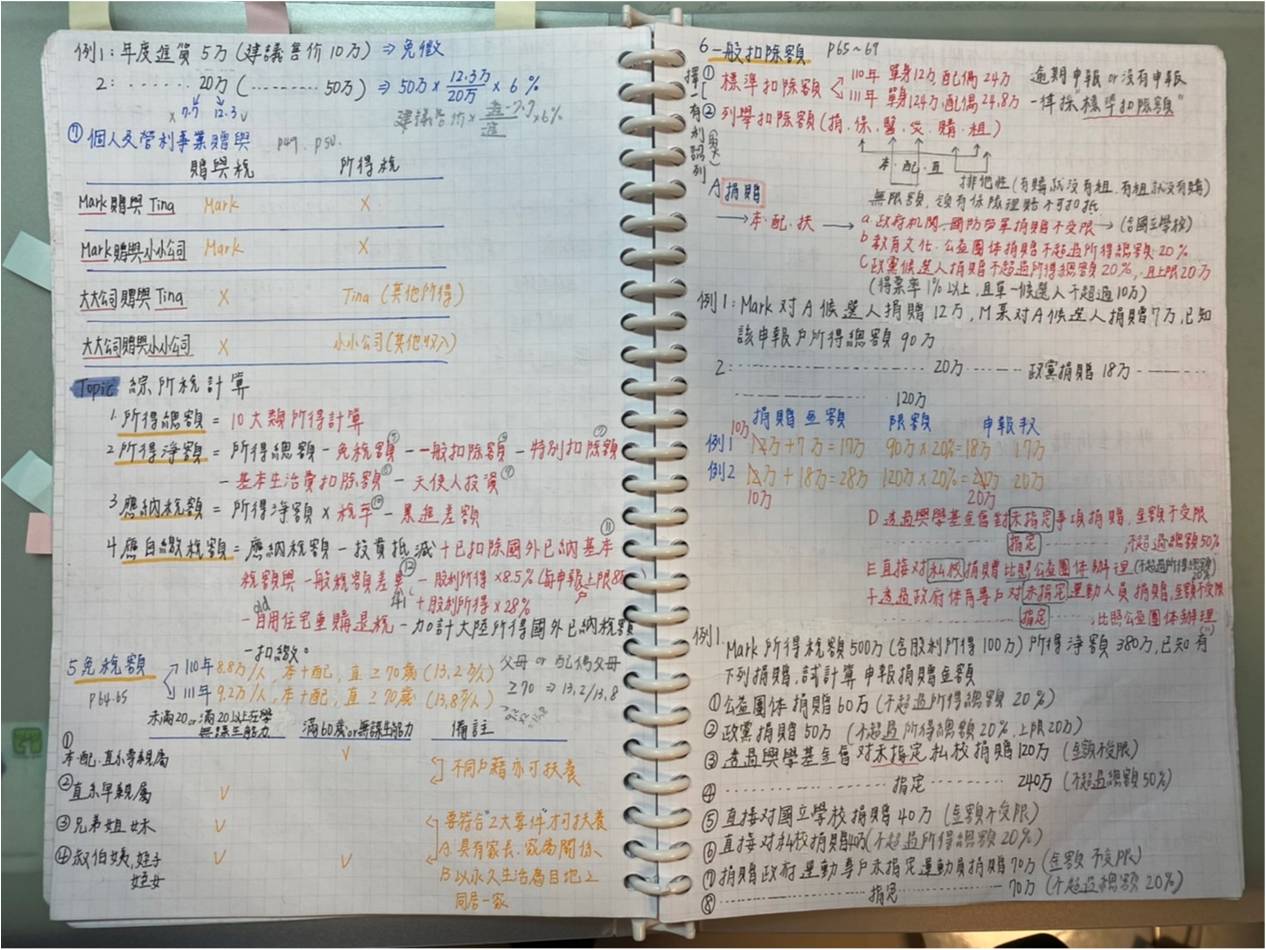 例1:年度進貨 5万 (建議售价10万) ⇒ 免徵
2: ...... 20万 (......... 50万) ⇒ 50万 × 12.3万/20万 × 6 %
× 7.7 12.3 ∨
建議售价 × 進-7.7/進 × 6%
⑦ 個人及營利事業贈與 P49. P50.
贈與稅 所得稅
Mark贈與 Tina Mark X
Mark贈與小小公司 Mark X
大大公司贈與 Tina X Tina (其他所得)
大大公司贈與小小公司 X 小小公司(其他收入)
Topic 綜所稅計算
1. 所得總額 = 10大類所得計算
2 所得淨額 = 所得總額 - 免稅額⑤ - 一般扣除額⑥ - 特別扣除額⑦
- 基本生活費扣除額⑧ - 天使人投資⑨
3. 應納稅額 = 所得淨額 × 稅率⑩ - 累進差額
4. 應自繳稅額 = 應納稅額 - 投資抵減 + 已扣除國外已納基本⑪
稅額與一般稅額差異⑫ - 股利所得 × 8.5% (每申報戶上限8万
or + 股利所得 × 28%
- 自用住宅重購退稅 - 加計大陸所得國外已納稅額
- 扣繳。
5 免稅額 P64.65
110年 8.8万/人, 本+配, 直 ≥ 70歲 (13.2万/人)
111年 9.2万/人, 本+配, 直 ≥ 70歲 (13.8万/人)
父母 or 配偶父母
≥70 ⇒ 13.2/13.8
未滿20 or 滿20以上在學 無謀生能力 滿60歲 or 無謀生能力 備註
① 本.配.直系尊親屬 ∨ 不同戶籍亦可扶養
② 直系卑親屬 ∨
③ 兄弟姐妹 ∨ 要符合"2大要件"才可扶養
④ 叔伯姨, 姪子 姪女 ∨ ∨ A 具有家長.家屬關係、
B 以永久生活為目地之
同居一家
6 一般扣除額 P65~69
擇一有利認列
① 標準扣除額 110年 單身12万, 配偶 24万
111年 單身12.4万, 配偶 24.8万
逾期申報 or 沒有申報
一律採標準扣除額"
② 列舉扣除額 (捐.保.醫.災.購.租)
本.配.直
排他性 (有購就沒有租, 有租就沒有購)
無限額, 設有保險理賠不可扣抵
A 捐贈
→ 本.配.扶 → a. 政府机関.國防勞軍捐贈不受限 → (含國立學校)
b 教育文化.公益團体捐贈不超過所得總額20%
C 政黨候選人捐贈不超過所得總額20%, 且上限20万
(得票率1%以上, 且單一候選人不超過10万)
例1: Mark 対 A 候選人捐贈 12万, M某対A候選人捐贈7万, 已知
該申報戶所得總額 90万
2: .......... 20万 ........ 政黨捐贈 18万 ........
.......... 120万
捐贈金額 限額 申報数
例1 10万 12万+7万=17万 90万×20%=18万 17万
例2 12万+18万=28万 120万×20%=24万 20万
10万 20万
D 透過興學基金會対未指定事項捐贈, 金額不受限
指定 ........ 不超過總額50%
E 直接対私校捐贈比照公益團体辦理 (不超過所得總額20%)
F 透過政府体育專戶対未指定運動人員捐贈, 金額不受限
指定 ........ 比照公益團体辦理
例1. Mark 所得稅額500万 (含股利所得 100万) 所得淨額 380万, 已知有
下列捐贈, 試計算申報捐贈金額
① 公益團体捐贈 60万 (不超過所得總額 20%)
② 政黨捐贈 50万 (不超過所得總額20%, 上限20万)
③ 透過興學基金會対未指定私校捐贈120万 (金額不受限)
④ ........ 指定 ........ 240万 (不超過總額 50%)
⑤ 直接対國立學校捐贈 40万 (金額不受限)
⑥ 直接対私校捐贈40万(不超過所得總額 20%)
⑦ 捐贈政府運動專戶未指定運動員捐贈70万 (金額不受限)
⑧ ........ 指定 ........ 70万 (不超過總額20%)